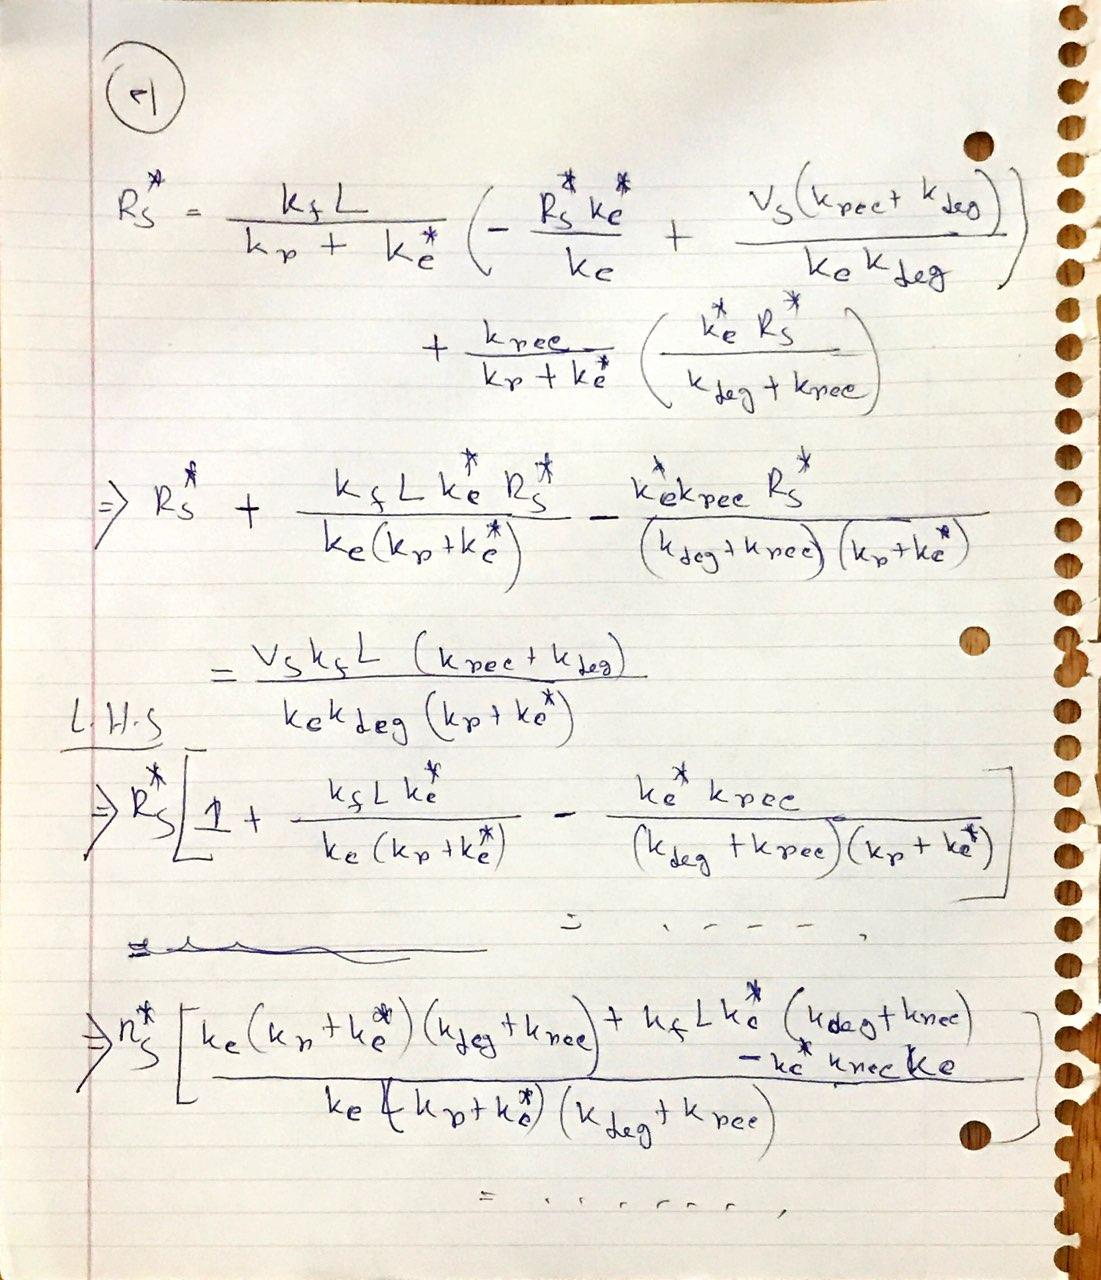 e)
R_S^* = \frac{k_f L}{k_r + k_e^*} ( - \frac{R_S^* k_e^*}{k_e} + \frac{V_S (k_{rec} + k_{deg})}{k_e k_{deg}} )
+ \frac{k_{rec}}{k_r + k_e^*} ( \frac{k_e^* R_S^*}{k_{deg} + k_{rec}} )
⇒ R_S^* + \frac{k_f L k_e^* R_S^*}{k_e (k_r + k_e^*)} - \frac{k_e^* k_{rec} R_S^*}{(k_{deg} + k_{rec}) (k_r + k_e^*)}
= \frac{V_S k_f L (k_{rec} + k_{deg})}{k_e k_{deg} (k_r + k_e^*)}
L.H.S
⇒ R_S^* [ 1 + \frac{k_f L k_e^*}{k_e (k_r + k_e^*)} - \frac{k_e^* k_{rec}}{(k_{deg} + k_{rec}) (k_r + k_e^*)} ]
= . - - - - ,
⇒ R_S^* [ \frac{k_e (k_r + k_e^*) (k_{deg} + k_{rec}) + k_f L k_e^* (k_{deg} + k_{rec}) - k_e^* k_{rec} k_e}{k_e (k_r + k_e^*) (k_{deg} + k_{rec})} ]
= . . . . . . ,